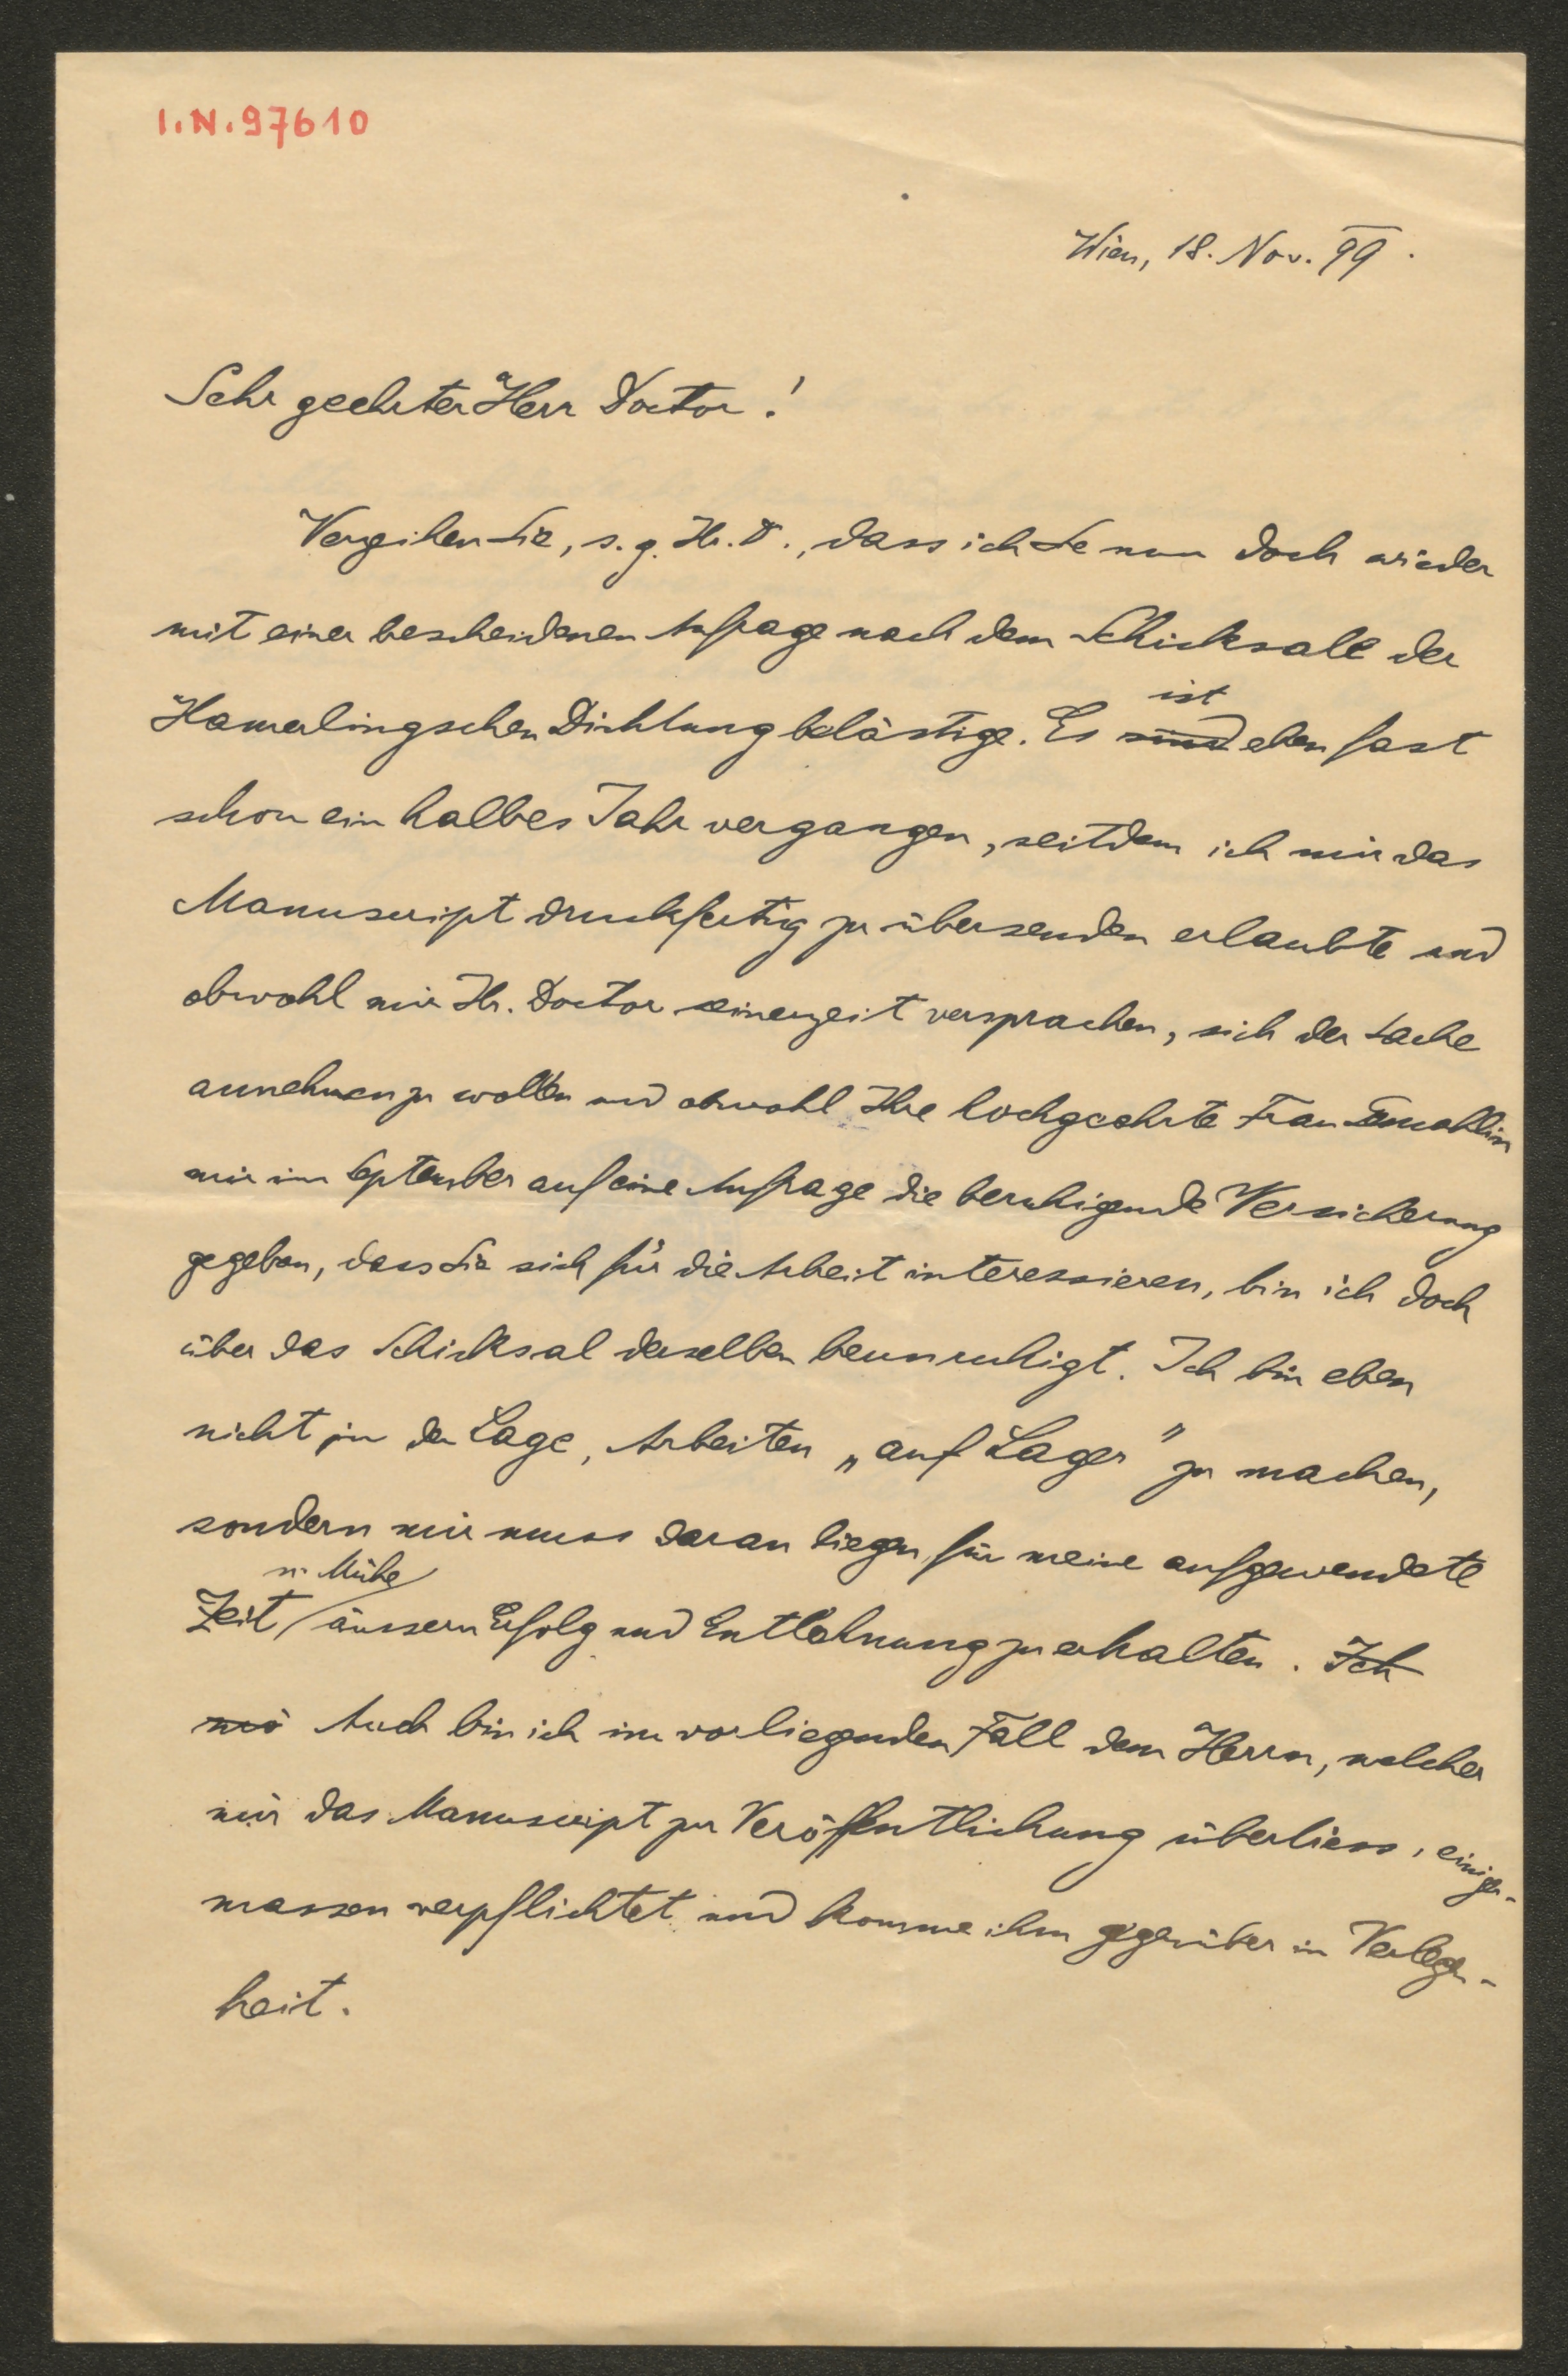 I.N.97610
Wien, 18. Nov. 99.
Sehr geehrter Herr Doctor!
Verzeihen Sie, s. g. Hr. D., dass ich Sie nun doch wieder
mit einer bescheidenen Anfrage nach dem Schicksale der
Hamerlingschen Dichtung belästige. Es sind ist eben fast
schon ein halbes Jahr vergangen, seitdem ich mir das
Manuscript druckfertig zu übersenden erlaubte und
obwohl mir Hr. Doctor seinerzeit versprachen, sich der Sache
annehmen zu wollen und obwohl Ihre hochgeehrte Frau Gemahlin
mir im September auf eine Anfrage die beruhigende Versicherung
gegeben, dass Sie sich für die Arbeit interessieren, bin ich doch
über das Schicksal derselben beunruhigt. Ich bin eben
nicht in der Lage, Arbeiten „auf Lager" zu machen,
sondern mir muss daran liegen für meine aufgewendete
Zeit u. Mühe äussern Erfolg und Entlohnung zu erhalten. Ich
mö Auch bin ich im vorliegenden Fall dem Herrn, welcher
mir das Manuscript zur Veröffentlichung überliess, einiger-
massen verpflichtet und komme ihm gegenüber in Verlegen-
heit.